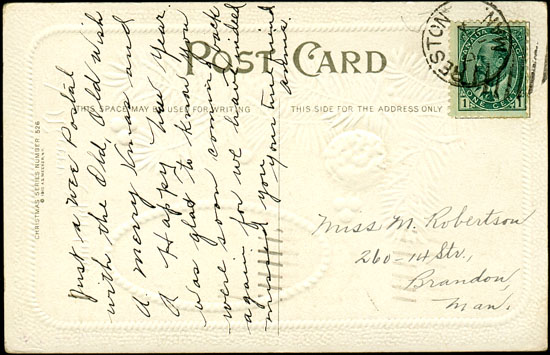 POST CARD
THIS SPACE MAY BE USED FOR WRITING
THIS SIDE FOR THE ADDRESS ONLY
CHRISTMAS SERIES NUMBER 526
Just a wee Postal
with the Old, Old wish
A merry Xmas and
A Happy New Year.
was glad to know you
were soon coming back
again for we have indeed
missed you your true friend
Miss M. Robertson
260-14 Str.,
Brandon,
Man.
RESTON
MAN
ONE CENT
1 1